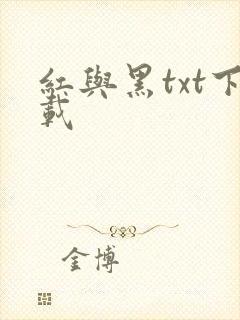 紅與黑txt下
載
金博